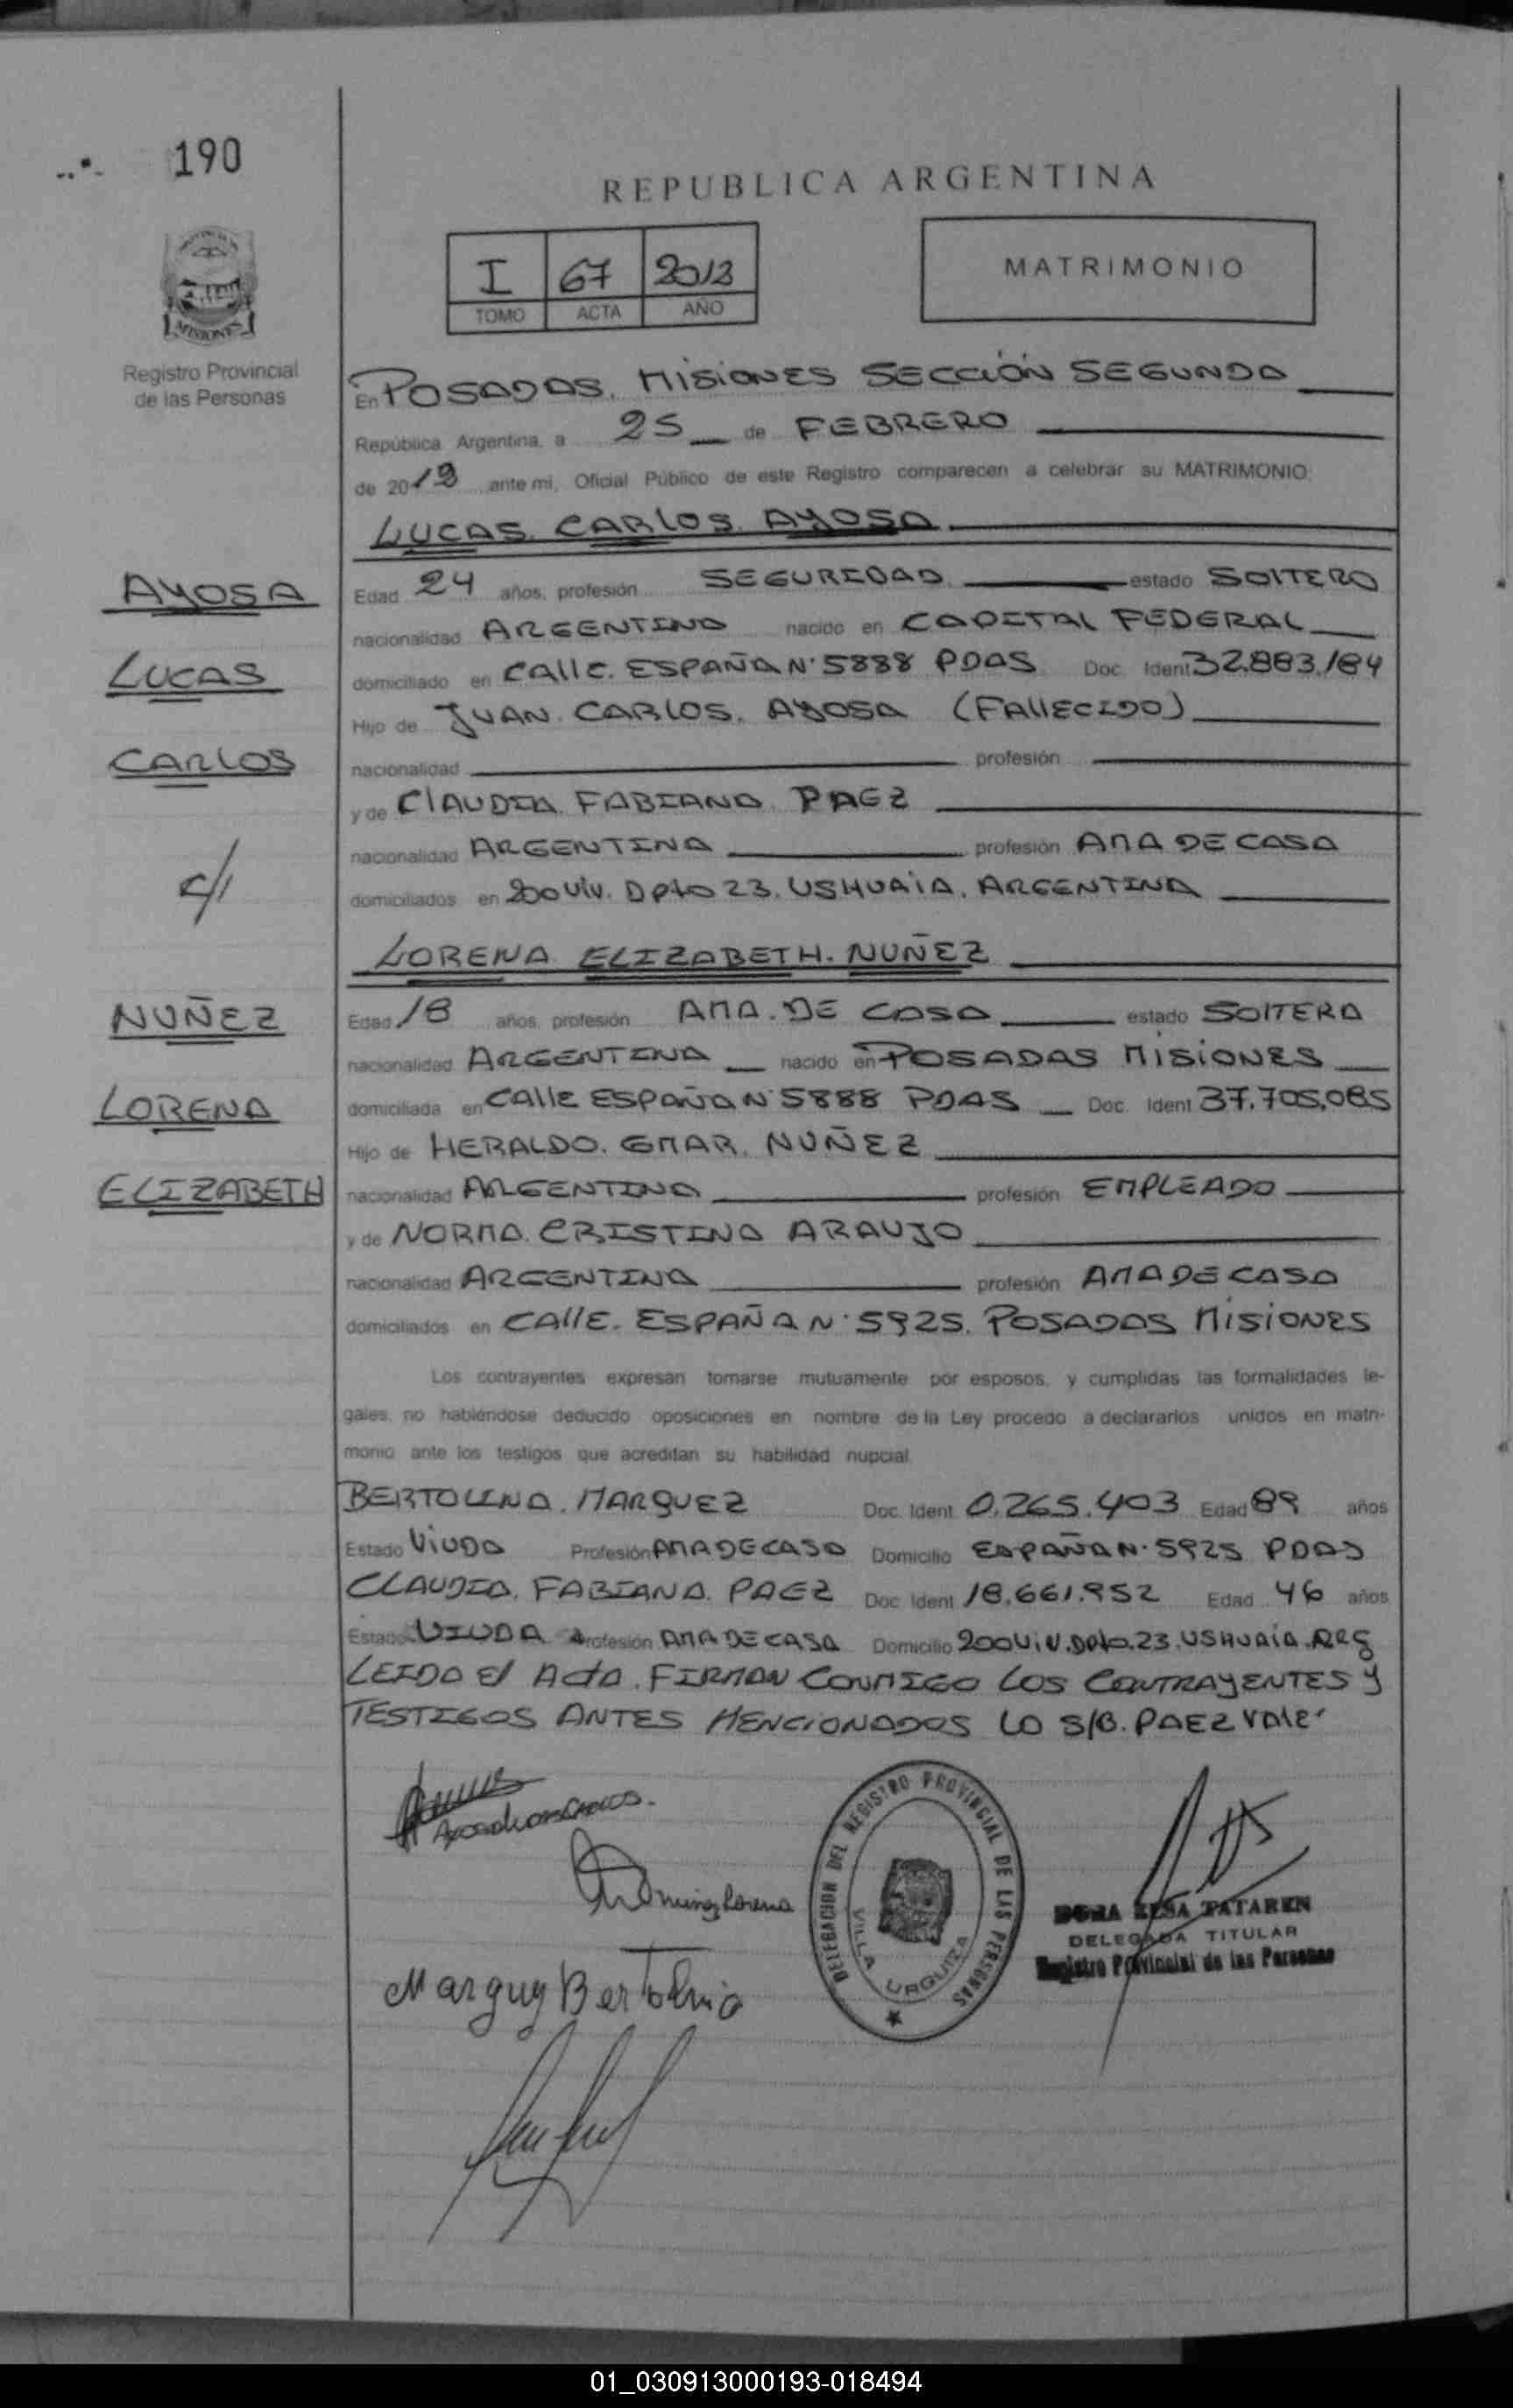 190
REPUBLICA ARGENTINA
I 67 2013
TOMO ACTA AÑO
MATRIMONIO
MISIONES
Registro Provincial
de las Personas
En POSADAS, MISIONES SECCIÓN SEGUNDA
República Argentina, a 25 de FEBRERO
de 2013 ante mi, Oficial Público de este Registro comparecen a celebrar su MATRIMONIO:
LUCAS CARLOS AYOSA
AYOSA
Edad 24 años, profesión SEGURIDAD estado SOLTERO
nacionalidad ARGENTINA nacido en CAPITAL FEDERAL
LUCAS
domiciliado en CALLE. ESPAÑA N° 5888 PDAS Doc. Ident 32.883.184
Hijo de JUAN CARLOS. AYOSA (FALLECIDO)
CARLOS
nacionalidad profesión
y de CLAUDIA FABIANA PAEZ
nacionalidad ARGENTINA profesión AMA DE CASA
c/
domiciliados en 200 Viv. Dpto 23. USHUAIA. ARGENTINA
LORENA ELIZABETH. NUÑEZ
NUÑEZ
Edad 18 años, profesión AMA. DE CASA estado SOLTERA
nacionalidad ARGENTINA nacido en POSADAS MISIONES
LORENA
domiciliada en CALLE ESPAÑA N° 5888 PDAS Doc. Ident 37.705.085
Hijo de HERALDO. OMAR. NUÑEZ
ELIZABETH
nacionalidad ARGENTINA profesión EMPLEADO
y de NORMA CRISTINA ARAUJO
nacionalidad ARGENTINA profesión AMA DE CASA
domiciliados en CALLE. ESPAÑA N° 5925. POSADAS MISIONES
Los contrayentes expresan tomarse mutuamente por esposos, y cumplidas las formalidades le-
gales, no habiéndose deducido oposiciones en nombre de la Ley procedo a declararlos unidos en matri-
monio ante los testigos que acreditan su habilidad nupcial
BERTOLINA. MARQUEZ Doc. Ident 0.265.403 Edad 89 años
Estado VIUDA Profesión AMA DE CASA Domicilio ESPAÑA N° 5925 PDAS
CLAUDIA. FABIANA. PAEZ Doc. Ident 18.661.952 Edad 46 años
Estado VIUDA Profesión AMA DE CASA Domicilio 200 Viv. Dpto. 23. USHUAIA. ARG
LEIDO El Acta. FIRMAN CONMIGO LOS CONTRAYENTES Y
TESTIGOS ANTES MENCIONADOS LO S/B. PAEZ VALE
Nuñez Lorena
Marquez Bertolina
DELEGACION DEL REGISTRO PROVINCIAL DE LAS PERSONAS
VILLA URQUIZA
DORA ELSA TATAREN
DELEGADA TITULAR
Registro Provincial de las Personas
01_030913000193-018494